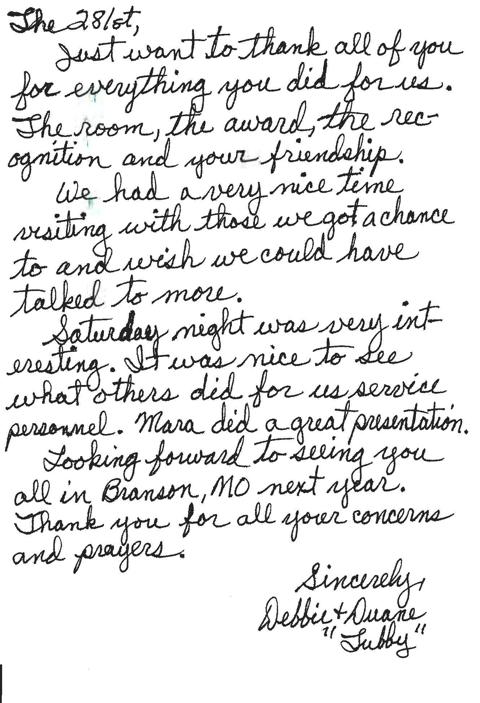 The 281st,
Just want to thank all of you
for everything you did for us.
The room, the award, the rec-
ognition and your friendship.
We had a very nice time
visiting with those we got a chance
to and wish we could have
talked to more.
Saturday night was very int-
eresting. It was nice to see
what others did for us service
personnel. Mara did a great presentation.
Looking forward to seeing you
all in Branson, MO next year.
Thank you for all your concerns
and prayers.
Sincerely,
Debbie + Duane
"Tubby"